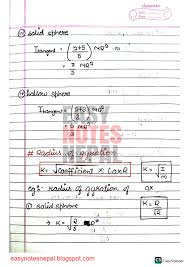 solid sphere
I tangent = (2+5 / 5) MR² 
= 7/5 MR²
hollow sphere
I tangent = (2+3 / 3) MR²
= 5/3 MR²
# Radius of gyration
K = √coefficient × (a or R)
K = √(I/m)
eg:- radius of gyration of
solid sphere
→ K = √(2/5)
EASY
NOTES
NEPAL
easynotesnepal.blogspot.com
CamScanner